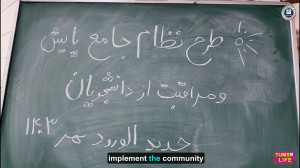 طرح نظام جامع پایش
ومراقبت از دانشجویان
جدید الورود مهر ۱۴۰۳
implement the community
TUMS LIFE